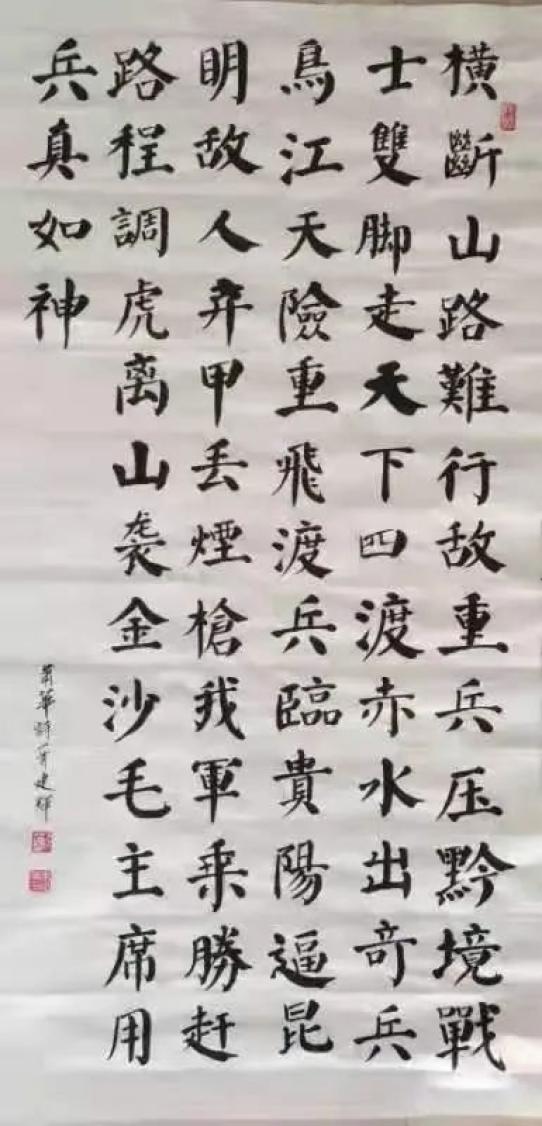 橫斷山路難行敌重兵压黔境戰
士雙脚走天下四渡赤水出奇兵
鳥江天險重飛渡兵臨貴陽逼昆
明敌人弃甲丢煙槍我軍乘勝赶
路程調虎离山袭金沙毛主席用
兵真如神
萧華詩建輝